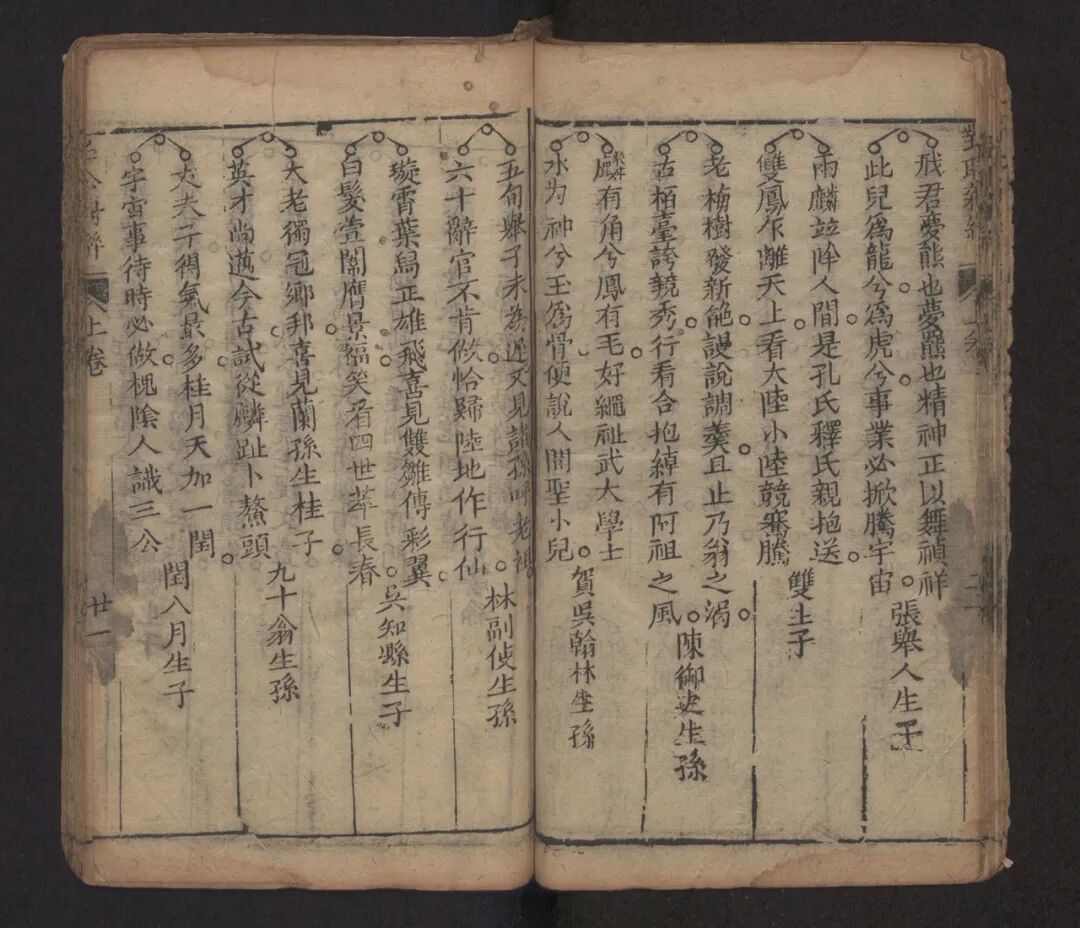 飛君夢熊也夢羆也精神正以舞禎祥
此兒為龍兮為虎兮事業必掀騰宇宙
張舉人生子
兩麟並降人間是孔氏釋氏親抱送
雙鳳乍離天上看大陸小陸競騫騰
雙生子
老梅樹發新葩謾說調羹且止乃翁之渴
古栢臺誇競秀行看合抱綽有阿祖之風
陳御史生孫
麟有角兮鳳有毛好繩祉武大學士
水为神兮玉為骨便說人間聖小兒
賀吳翰林生孫
五旬舉子未為遲又見諸孫呼老祖
六十辭官不肯做恰歸陸地作行仙
林副使生孫
璇霄葉舄正雄飛喜見雙雛傳彩翼
白髮萱闈膺景福笑看四世萃長春
吳知縣生子
大老獨冠鄉邦喜見蘭孫生桂子
英才尚邁今古試從麟趾卜鰲頭
九十翁生孫
大夫子得氣最多桂月天加一閏
宇宙事待時必做槐陰人識三公
閏八月生子
上卷
廿一